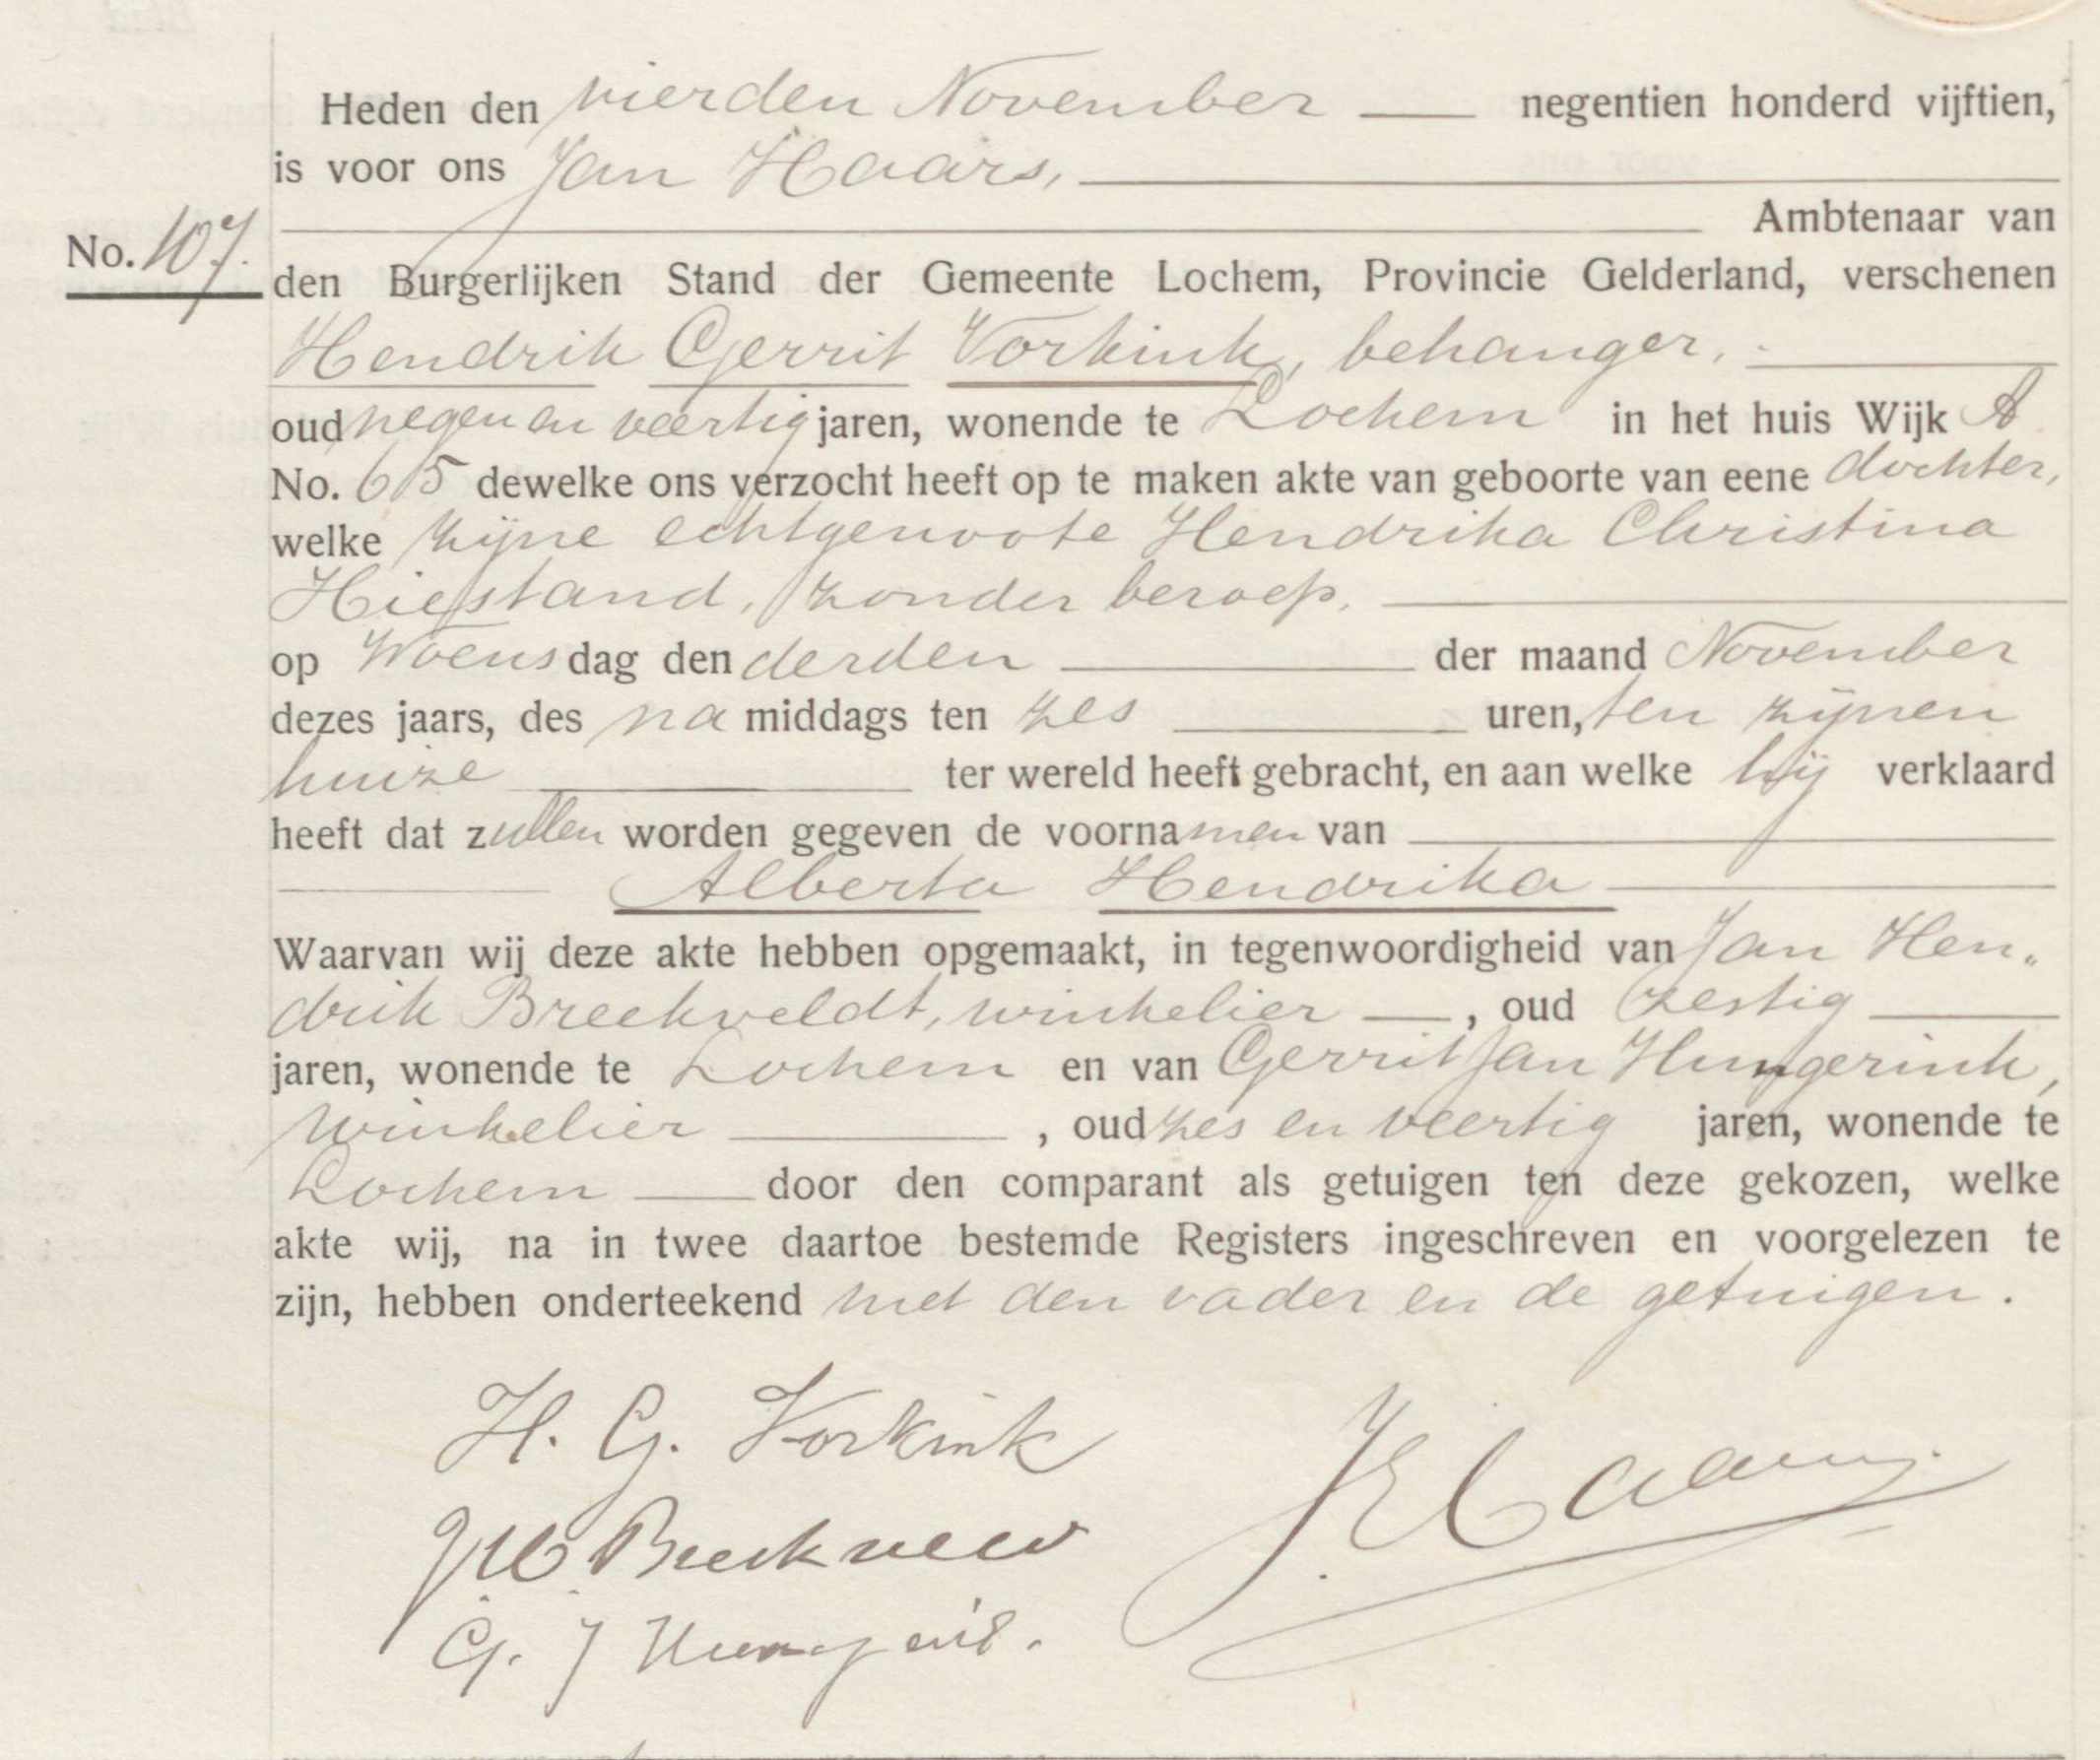 Heden den vierden November negentien honderd vijftien,
is voor ons Jan Haars,
Ambtenaar van
No. 107.
den Burgerlijken Stand der Gemeente Lochem, Provincie Gelderland, verschenen
Hendrik Gerrit Vorkink, behanger,
oud negen en veertig jaren, wonende te Lochem in het huis Wijk A
No. 65 dewelke ons verzocht heeft op te maken akte van geboorte van eene dochter,
welke zijne echtgenoote Hendrika Christina
Hiestand, zonder beroep,
op Woensdag den derden der maand November
dezes jaars, des namiddags ten zes uren, ten zijnen
huize ter wereld heeft gebracht, en aan welke hij verklaard
heeft dat zullen worden gegeven de voornamen van
Alberta Hendrika
Waarvan wij deze akte hebben opgemaakt, in tegenwoordigheid van Jan Hen„
drik Breekveldt, winkelier, oud zestig
jaren, wonende te Lochem en van Gerrit Jan Hungerink,
winkelier, oud zes en veertig jaren, wonende te
Lochem door den comparant als getuigen ten deze gekozen, welke
akte wij, na in twee daartoe bestemde Registers ingeschreven en voorgelezen te
zijn, hebben onderteekend met den vader en de getuigen.
H. G. Vorkink
JHaars
JH Breekveld
G. J Hungerink.